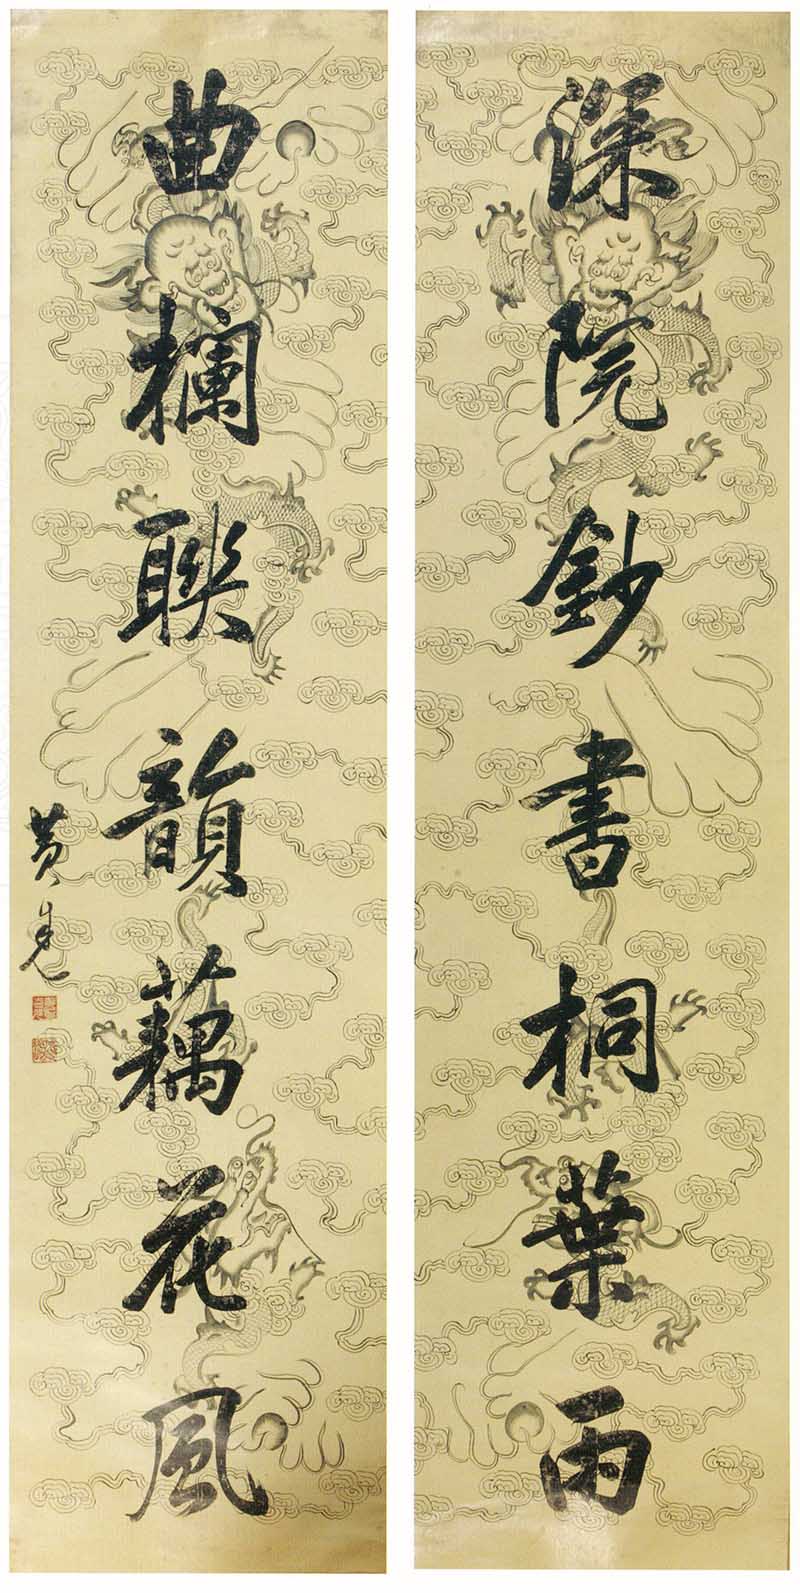 深院鈔書桐葉雨
曲欄聯韻藕花風
黄